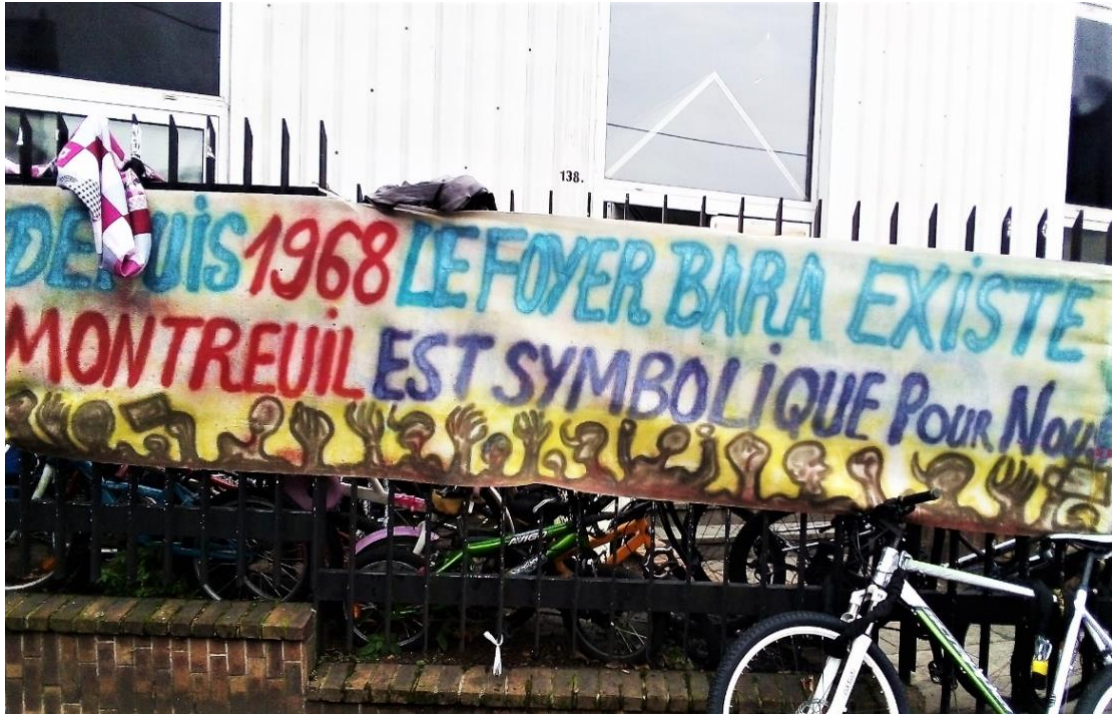 138.
DEPUiS 1968 LE FOYER BARA EXiSTE
MONTREUiL EST SYMBOLiQUE POUR NOUS